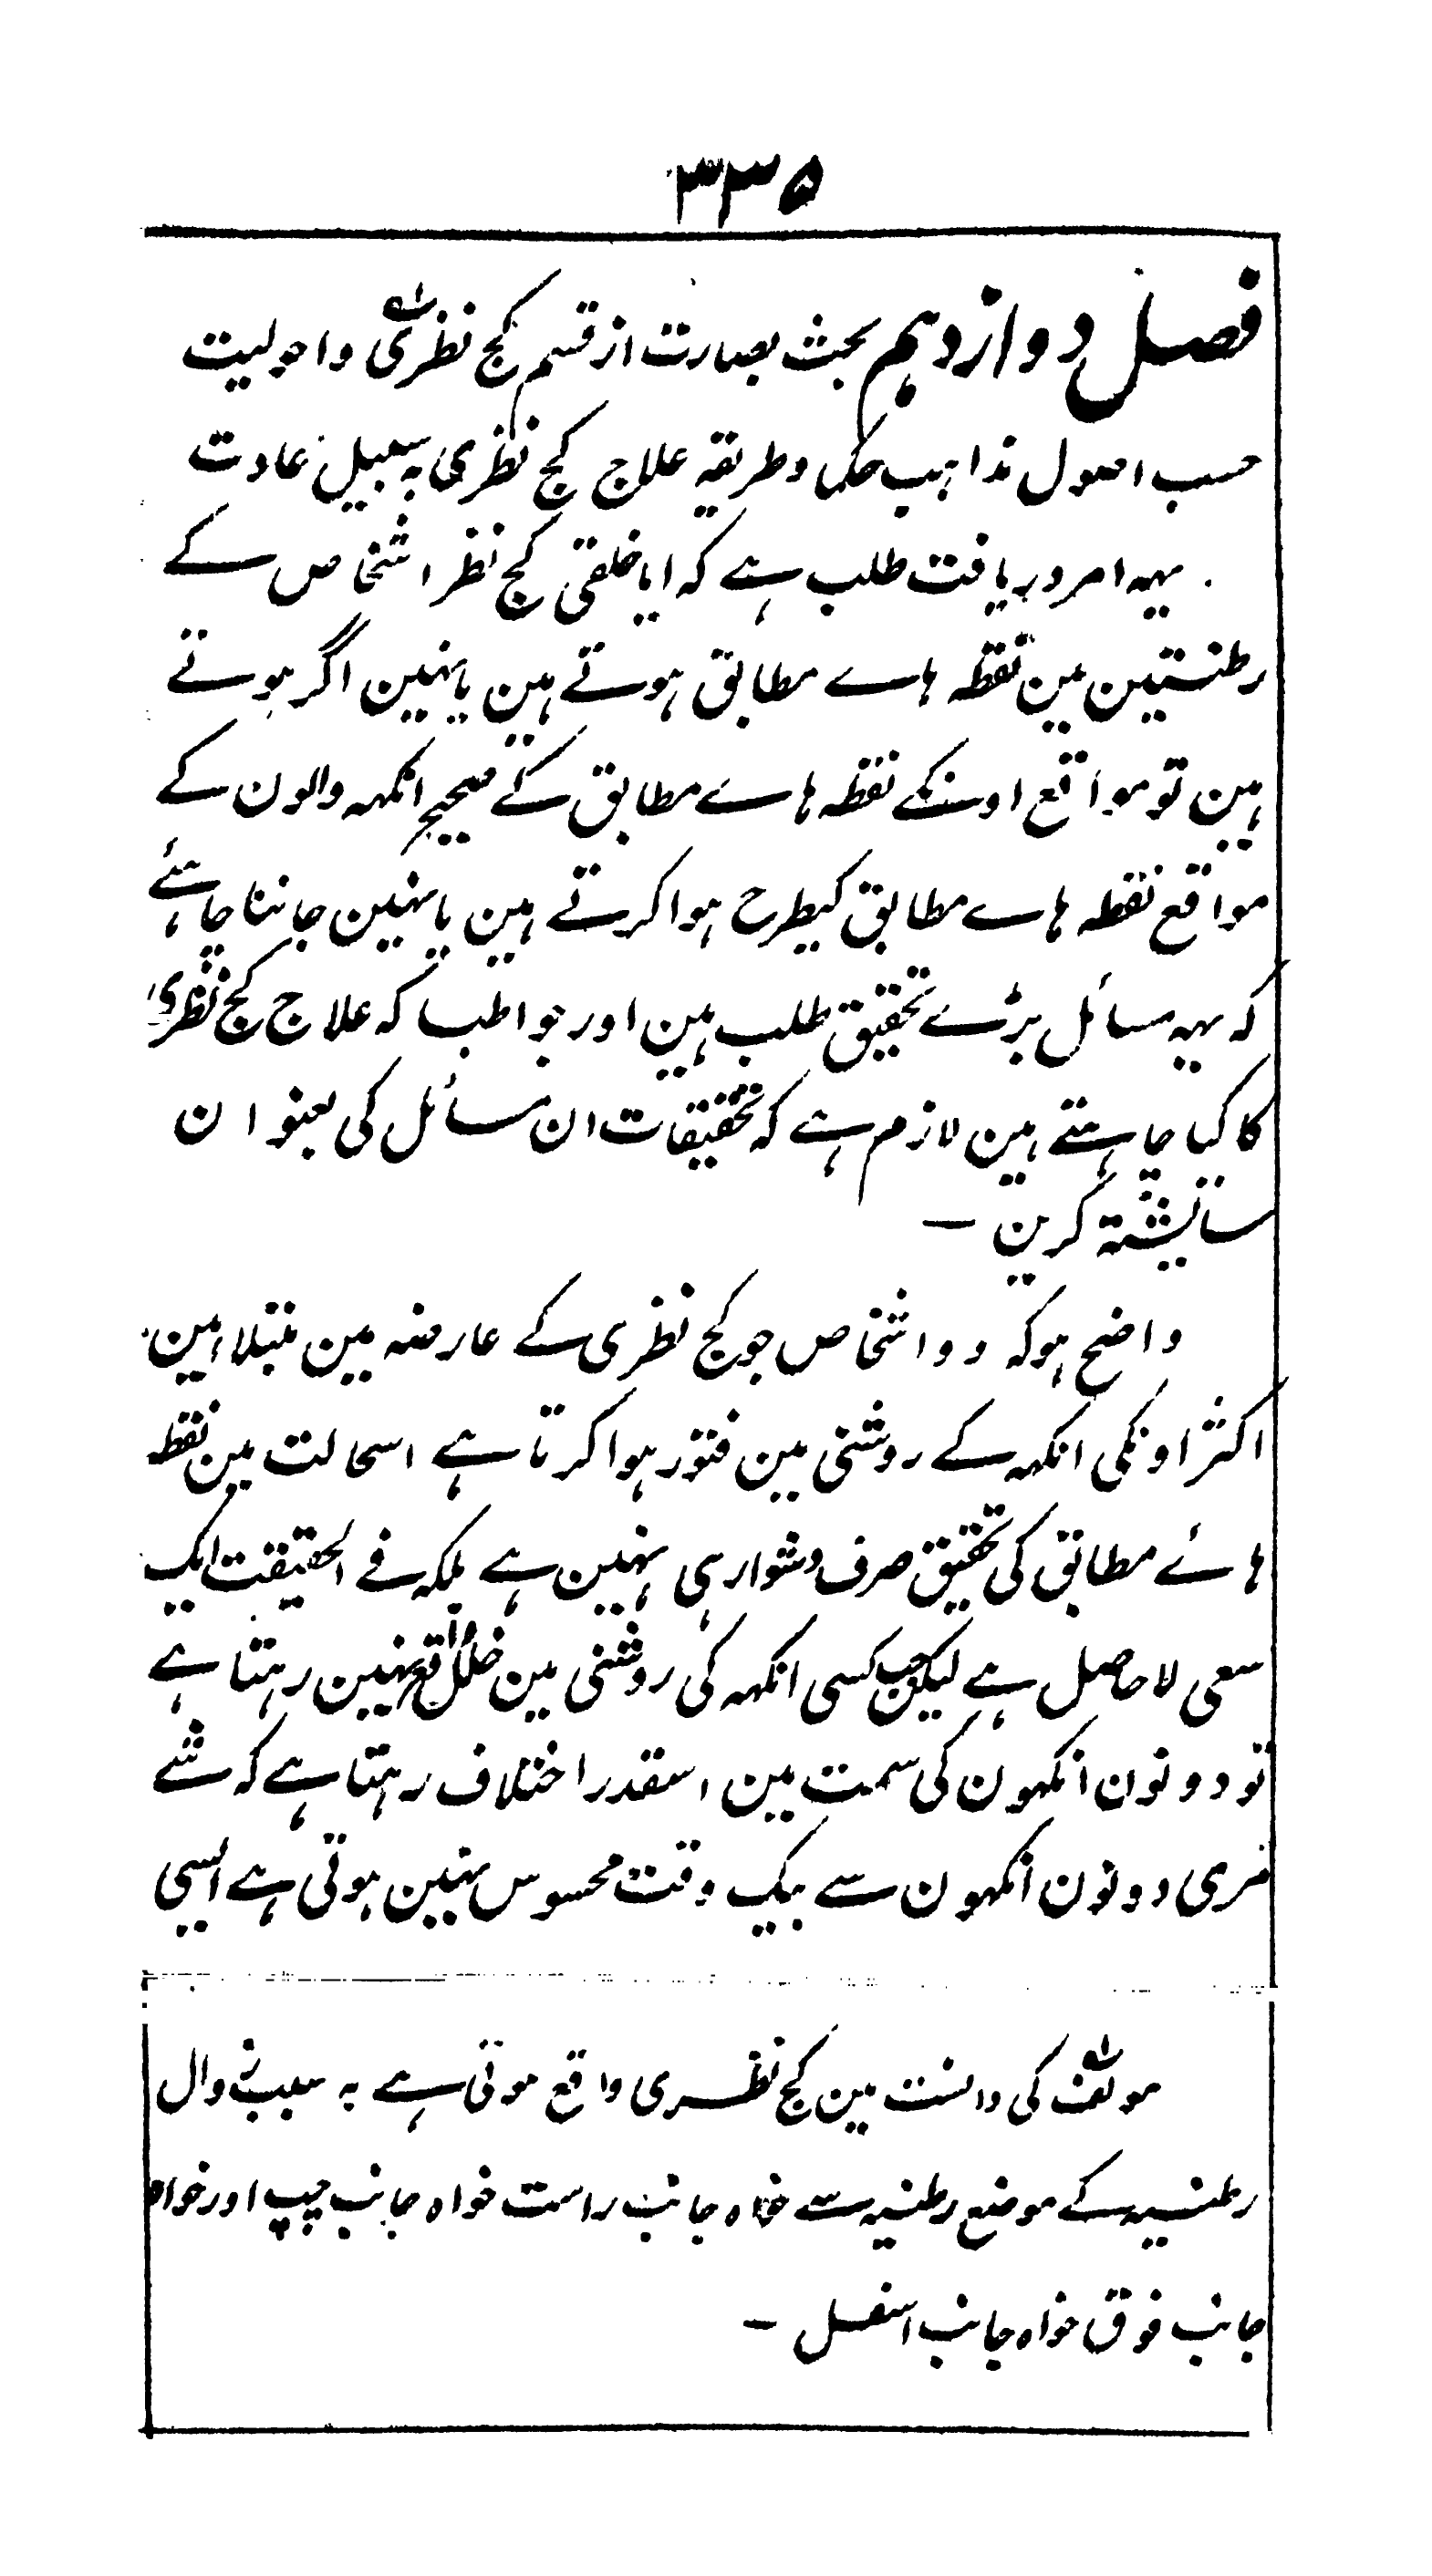 ۳۳۵
فصل دوازدہم بحث بصارت از قسم کج نظری؎۱ واحولیت
حسب اصول مذاہب حکما وطریقہ علاج کج نظری بہ سبیل عادت
یہہ امر دریافت طلب ہے کہ ایا خلقی کج نظر اشخاص کے
رطنستین مین نقطہ ہاے مطابق ہوتے ہین یا نہین اگر ہوتے
ہین تو مواقع اونکے نقطہ ہاے مطابق کے صحیح انکہہ والون کے
مواقع نقطہ ہاے مطابق کیطرح ہوا کرتے ہین یا نہین جاننا چاہئے
کہ یہہ مسائل بڑے تحقیق طلب ہین اور جو اطبا کہ علاج کج نظری
کا کیا چاہتے ہین لازم ہے کہ تحقیقات ان مسائل کی بعنوان
سایشتہ کرین ـ
واضح ہوکہ وو اشخاص جو کج نظری کے عارضہ مین مبتلا ہین
اکثر اونکی انکہہ کے روشنی مین فتور ہوا کرتا ہے اسحالت مین نقطہ
ہائے مطابق کی تحقیق صرف دشوار ہی نہین ہے بلکہ فے الحقیقت ایک
سعی لا حاصل ہے لیکن جب کسی انکہہ کی روشنی مین خلل واقع نہین رہتا ہے
تو دونون انکہون کی سمت مین اسقدر اختلاف رہتا ہے کہ شے
مری دونون انکہون سے بیک وقت محسوس نہین ہوتی ہے ایسی
؎۱ مولف کی دانست مین کج نظری واقع ہوتی ہے بہ سبب زوال
رطنیہ کے موضع رطنیہ سے خواہ جانب راست خواہ جانب چپ اور خواہ
جانب فوق خواہ جانب اسفل ـ